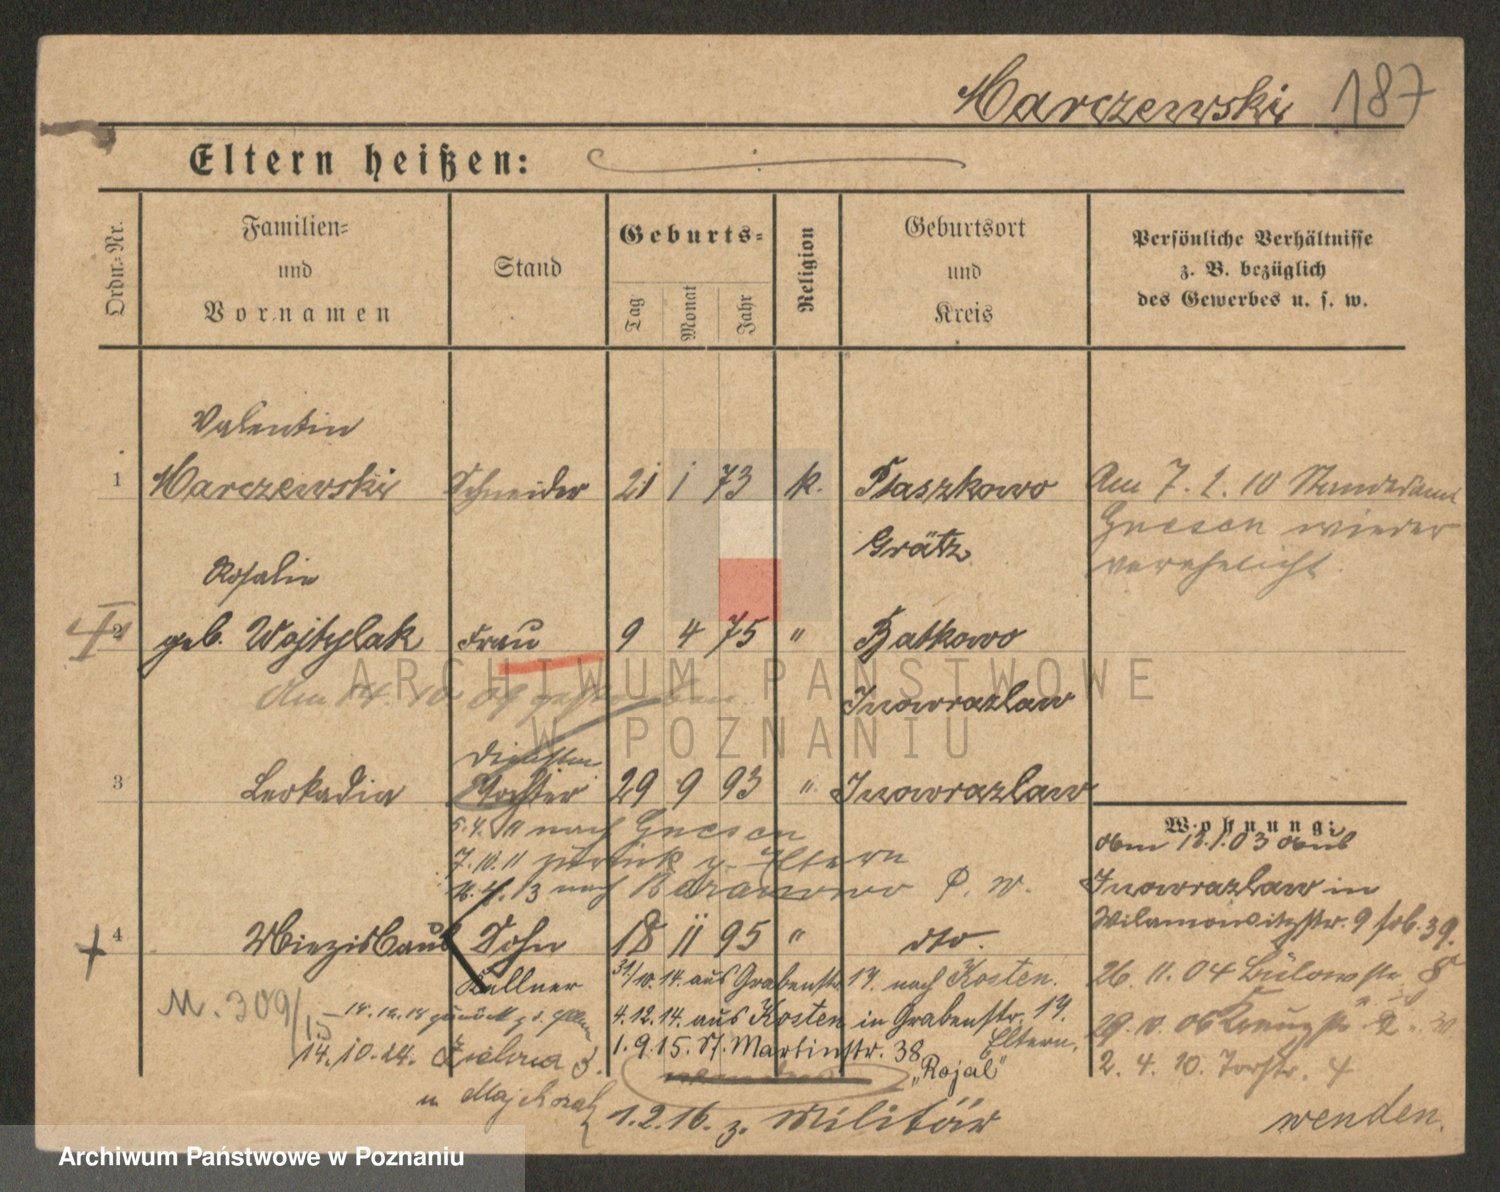 Marczewski 187
Eltern heißen:
Ordn.-Nr.
Familien-
und
Vornamen
Stand
Geburts-
Tag
Monat
Jahr
Religion
Geburtsort
und
Kreis
Persönliche Verhältnisse
z. B. bezüglich
des Gewerbes u. s. w.
Valentin
1 Marczewski Schneider 21 1 73 k. Ptaszkowo
Grätz
Am 7. 2. 10 Standesamt
Gnesen wieder
verehelicht.
Rosalie
2 geb. Wojtylak Frau 9 4 75 " Batkowo
Inowrazlaw
Am 14. 10 09 gestorben.
3 Leokadia Tochter 29 9 93 " Inowrazlaw
5. 4. 11 nach Gnesen
7. 10. 11 zurück z. Eltern
nach Baranowo P. W.
Wohnung:
vom 12.1.03 aus
Inowrazlaw in
Wilamowitzstr. 9
26. 11. 04 Bülowstr. 8
2. 4. 10. Torstr. 4
4 Miezislaus Sohn 18 11 95 " dto.
Kellner
31/10. 14. aus Grabenstr. 17. nach Kosten.
4. 12. 14. aus Kosten in Grabenstr. 17.
Eltern.
1. 9. 15. St. Martinstr. 38
"Rojal"
M. 309/
14. 10. 24.
1. 2. 16. z. Militär
wenden.
ARCHIWUM PAŃSTWOWE
W POZNANIU
Archiwum Państwowe w Poznaniu